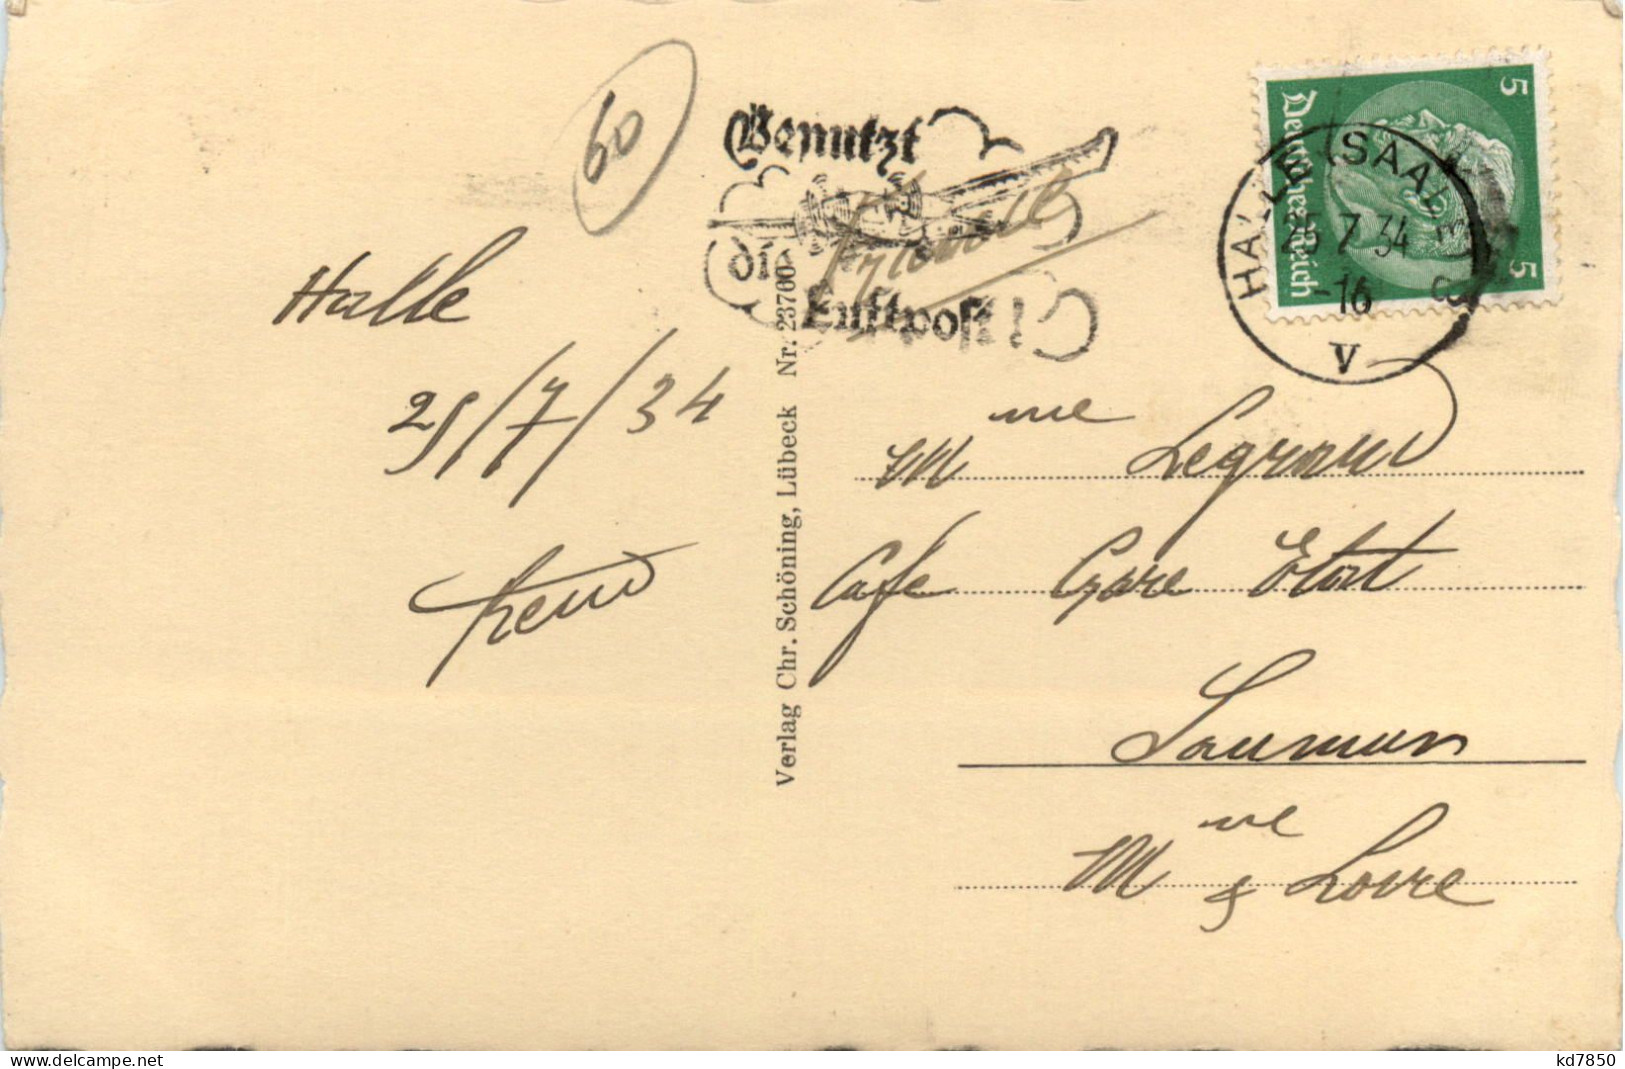 60
Benutzt
die
Luftpost
HALLE (SAALE)
25.7.34
-16
V
5 5
Deutsches Reich
Halle
25/7/34
Verlag Chr. Schöning, Lübeck Nr. 23700
Mme Legrand
Cafe Gare Etat
Saumur
Mne & Loire
kd7850